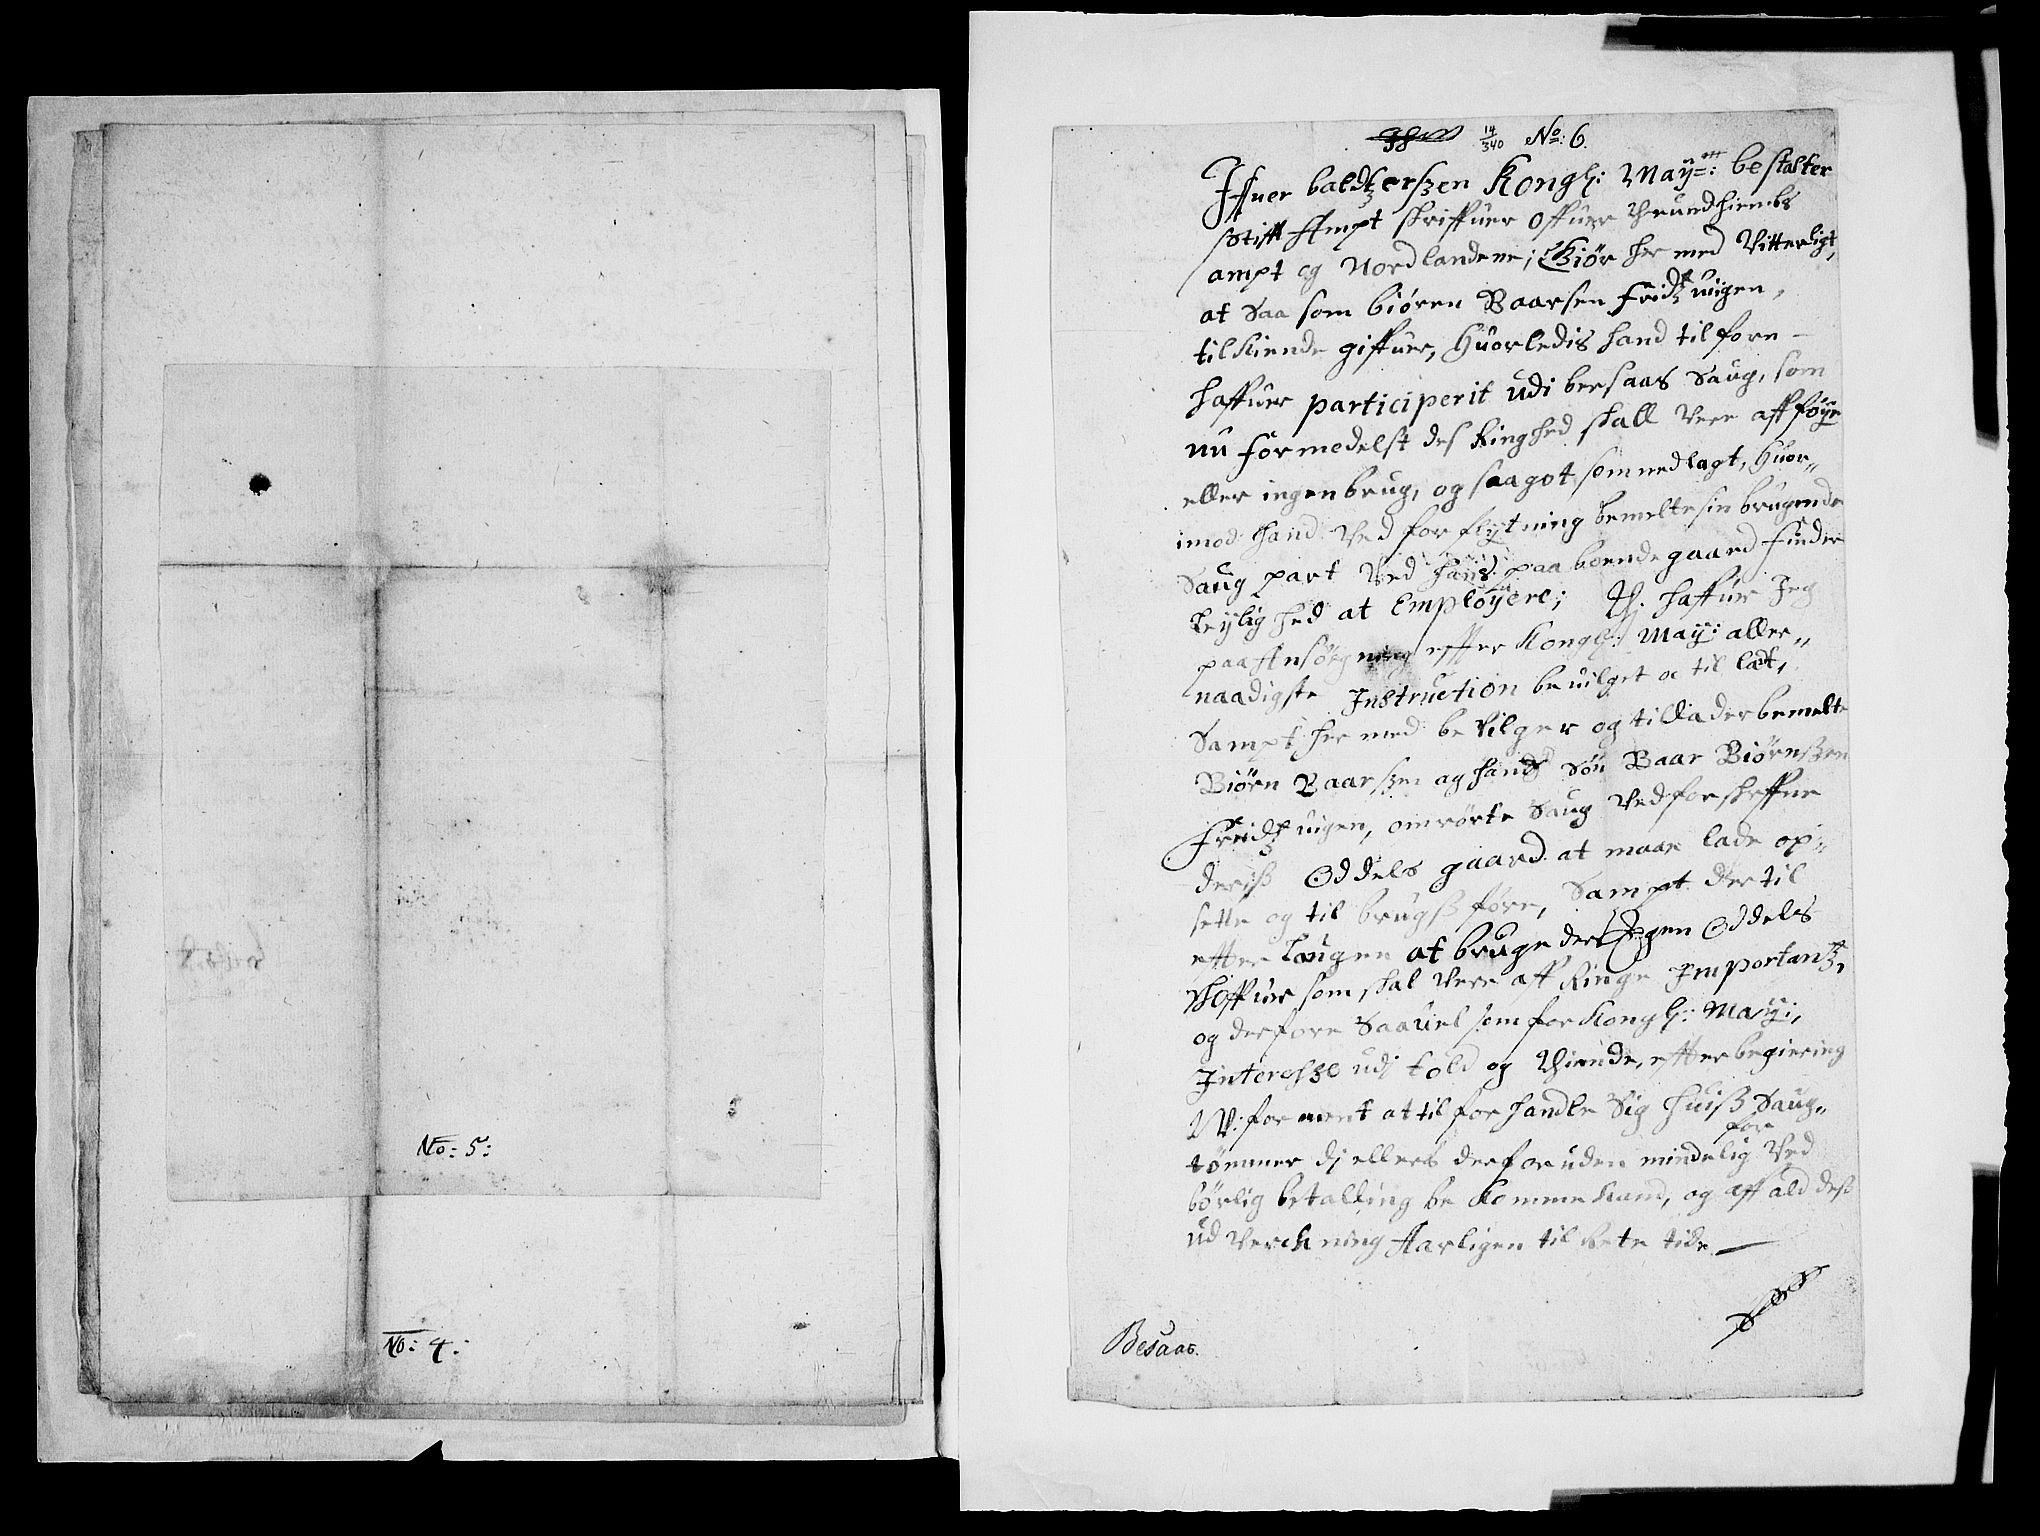 No: 5:
No: 4:
14/340 No: 6.
Iffuer baldtzerszen Kongl: May:tt: bestalter
Stifft Ampt skriffuer offuer Thrundhiembs
ampt og Nordlandene; Giør her med Vitterligt,
at Saa som biøren Baarsen Fridtzuigen,
tilkiende giffuer, huorledis hand tilforn
haffuer participerit udi bersaas Saug, som
nu formedelst des Ringhed skall Vere aff føye
eller ingen brug, og saa got som nedlagt, huor„
imod hand Ved forflytning bemelte sin brugende
Saug part Ved hans paa boende gaard finder
Leylighed at Employere; Th. haffuer Jeg
paa Ansøgning effter Kongl: May: aller„
naadigste Instruction beuilget oc til ladt,
Sampt her med beVilger og tillader bemelte
Biørn Baarszen og hands Søn Baar Biørnszen
Fridtzuigen, omrørte Saug Ved forskreffne
deris Oddels gaard at maae lade op„
sette og til brugsz føre, Sampt der til
efter Laugen at bruge der Egen Oddels
skoffue som skal Vere aff Ringe Importantz,
og derfore Saauel som for Kongl: May:,
Interesze udj told og thiende, effter begiering
W: forment at til forhandle Sig huisz Saug„
tømmer dj ellers der foruden mindelig for Ved
børlig betalling be komme kand, og aff ald desz
ud Verckning Aarligen til Rete tide
Besaas.